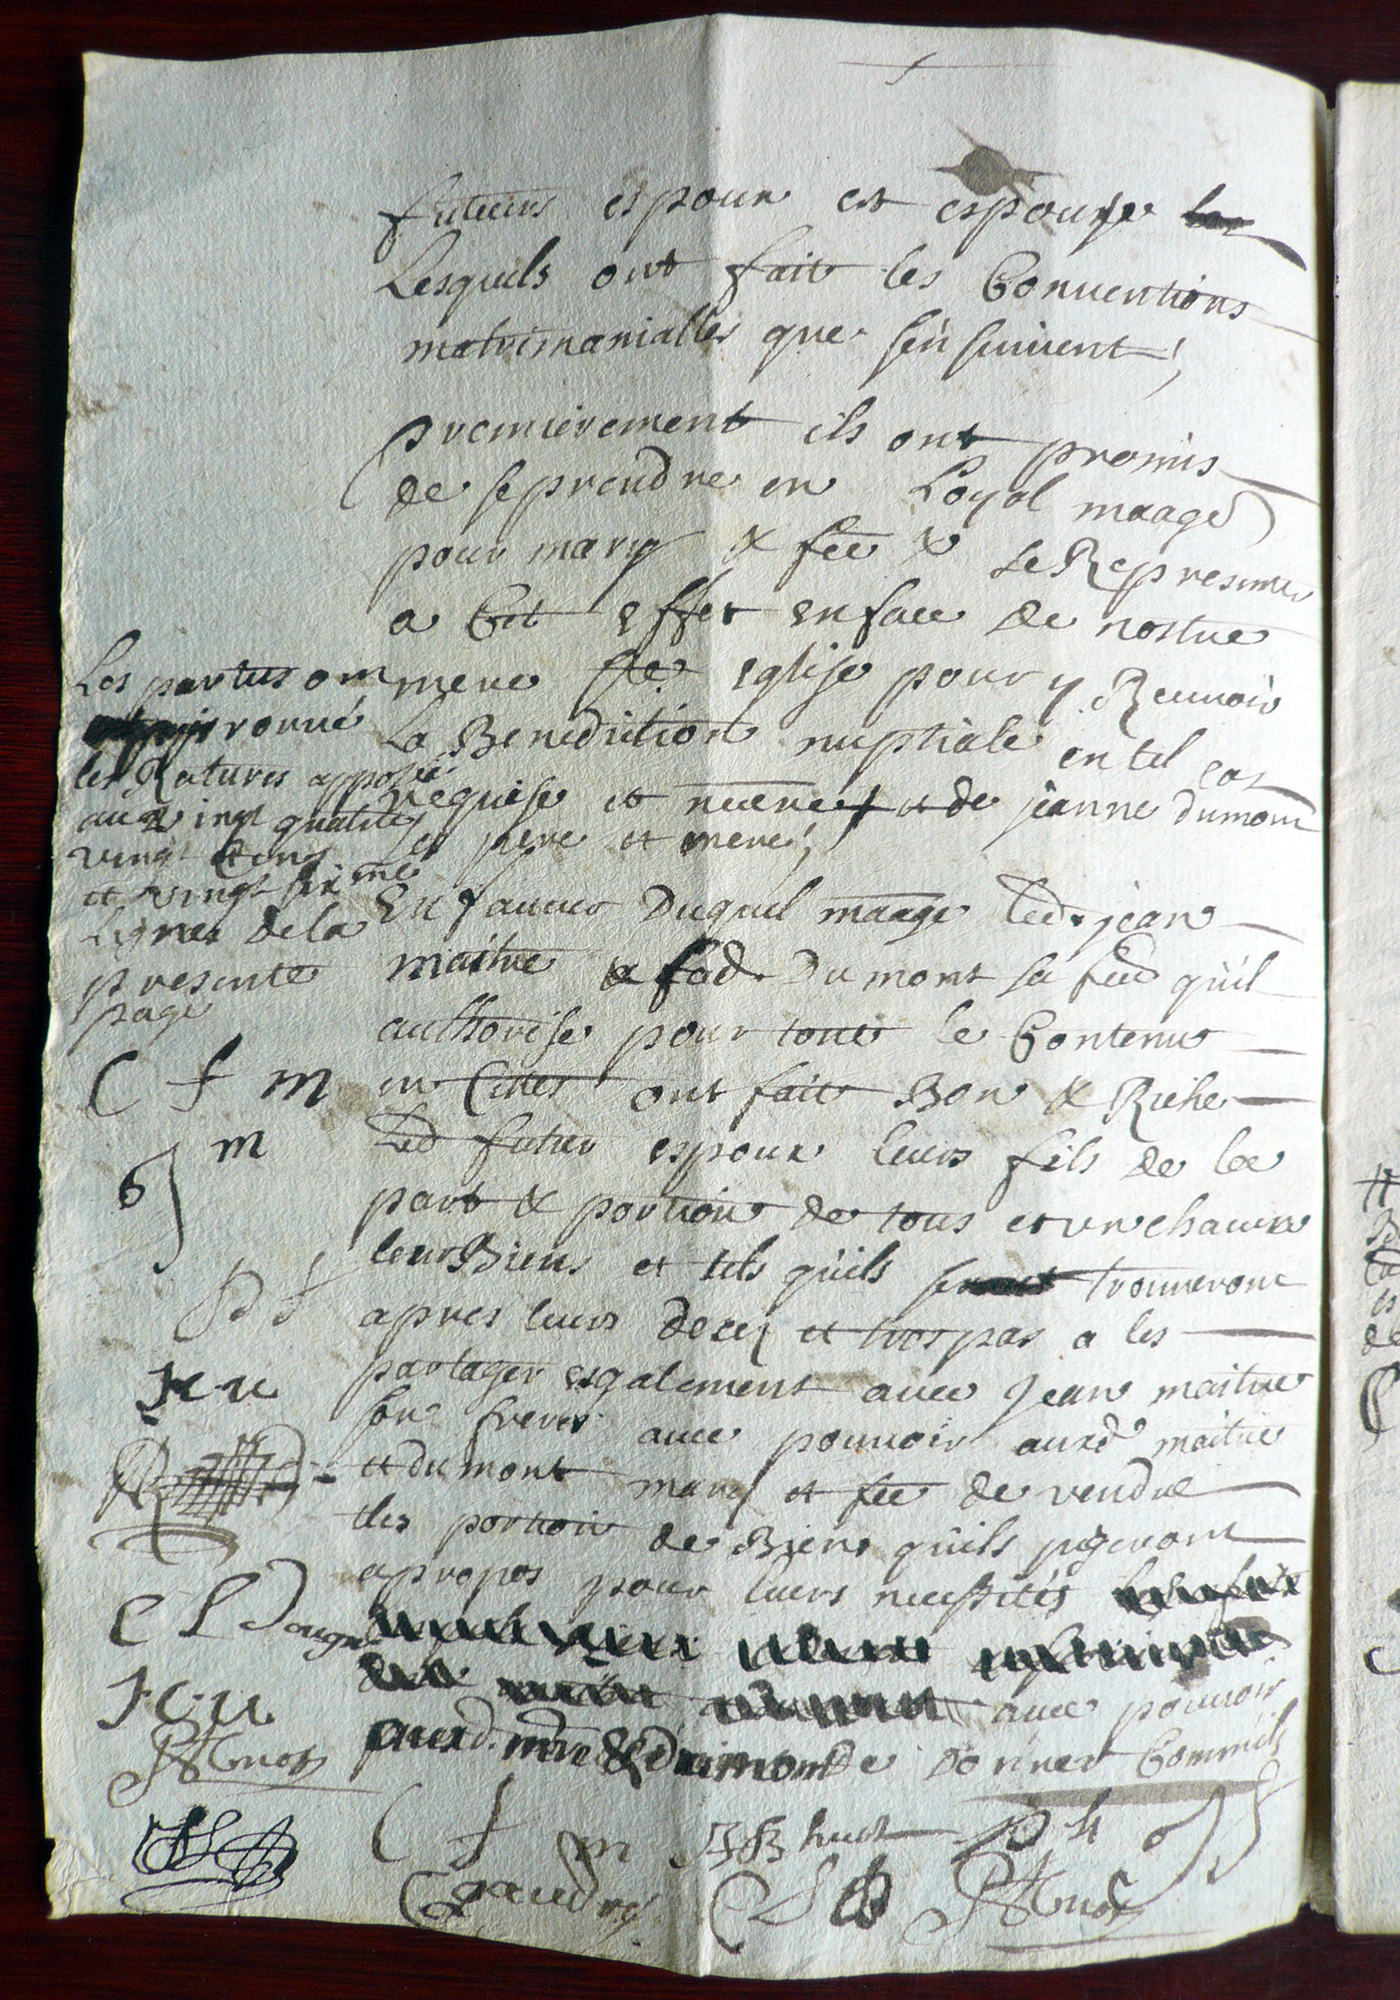 futeurs espoux et espouse
Lesquels ont fait les Conventions
matrimonialles que sen suivent
premierement ils ont promis
de se prendre en Loyal maage
pour mary & fee & se Representer
a Cet effet en face de nostre
mere ste Eglise pour y Recevoir
La Benediction nuptiale en tel cas
Requise et necere + et de jeanne dumont
ses pere et mere
En faveur Duquel maage led. jean
maitre & lad. Dumont sa fee quil
authorise pour tout le Contenu
en Cittes ont fait Bon & Riche
Led futur espoux leurs fils de la
part & portion de tous et un chacuns
leurs Biens et tels quils se trouveront
apres leurs decez et trespas a les
partager esgalement avec Jean maitre
son frere avec pouvoir auxd maitre
et dumont mary et fee de vendre
tles portion de Biens quils jugeront
apropos pour leurs necessités
avec pouvoir
auxd. mtre & dumont de donner Comme ils
Les parties ont
aprouvé
les Ratures apposée
aux vingt quatre
vingt cinq
et vingt six me
Lignes de la
presente
page
C f m
m
J C u
C L Daugu
J C u
C f m huet
Gaudry